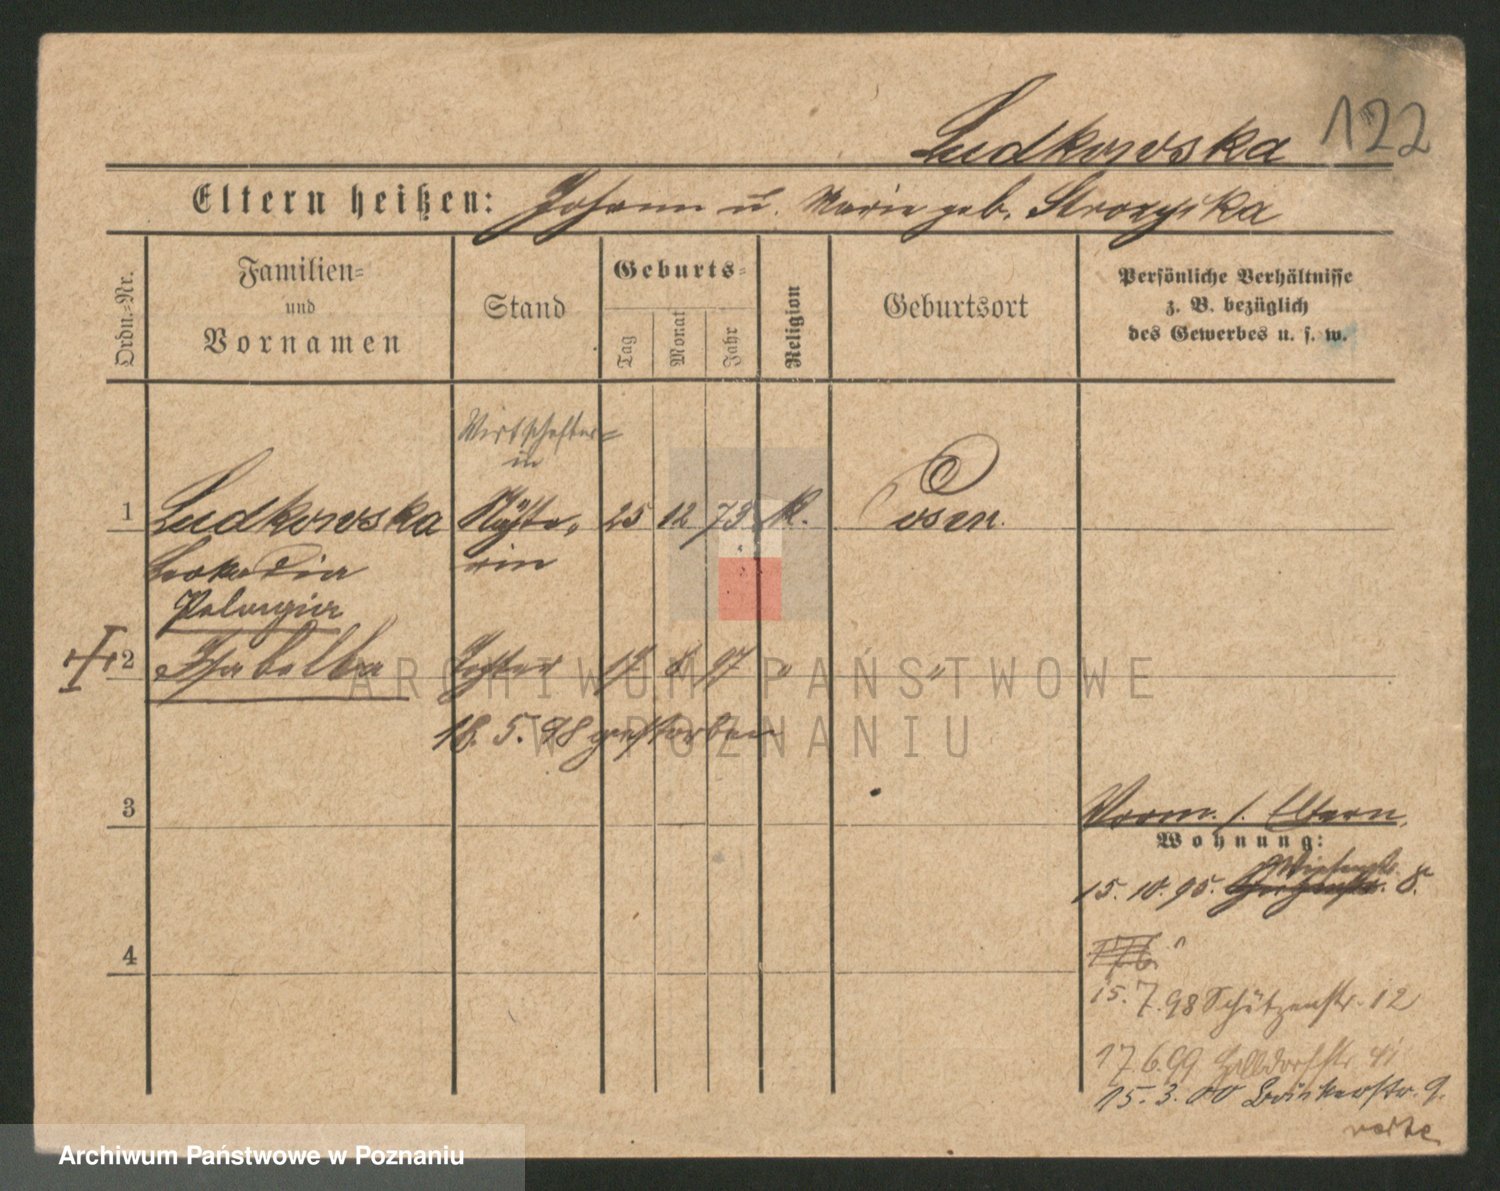 Ludkowska 122
Eltern heißen: Johann u. Marie geb. Strozyska
Ordn.-Nr.
Familien-
und
Vornamen
Stand
Geburts-
Tag
Monat
Jahr
Religion
Geburtsort
Persönliche Verhältnisse
z. B. bezüglich
des Gewerbes u. s. w.
Wirtschafter-
in
1 Ludkowska 25 12 73 k. Posen
Leokadia rin
Pelagia
2 Isabella Tochter 8 97 " "
18. 5. 98 gestorben
3
Vorm. s. Eltern
Wohnung:
15. 10. 95. 8.
4
15. 7. 98 Schützenstr. 12
17. 6. 99 Halbdorfstr.
15. 3. 00 Bäckerstr. 9.
ARCHIWUM PAŃSTWOWE
W POZNANIU
Archiwum Państwowe w Poznaniu